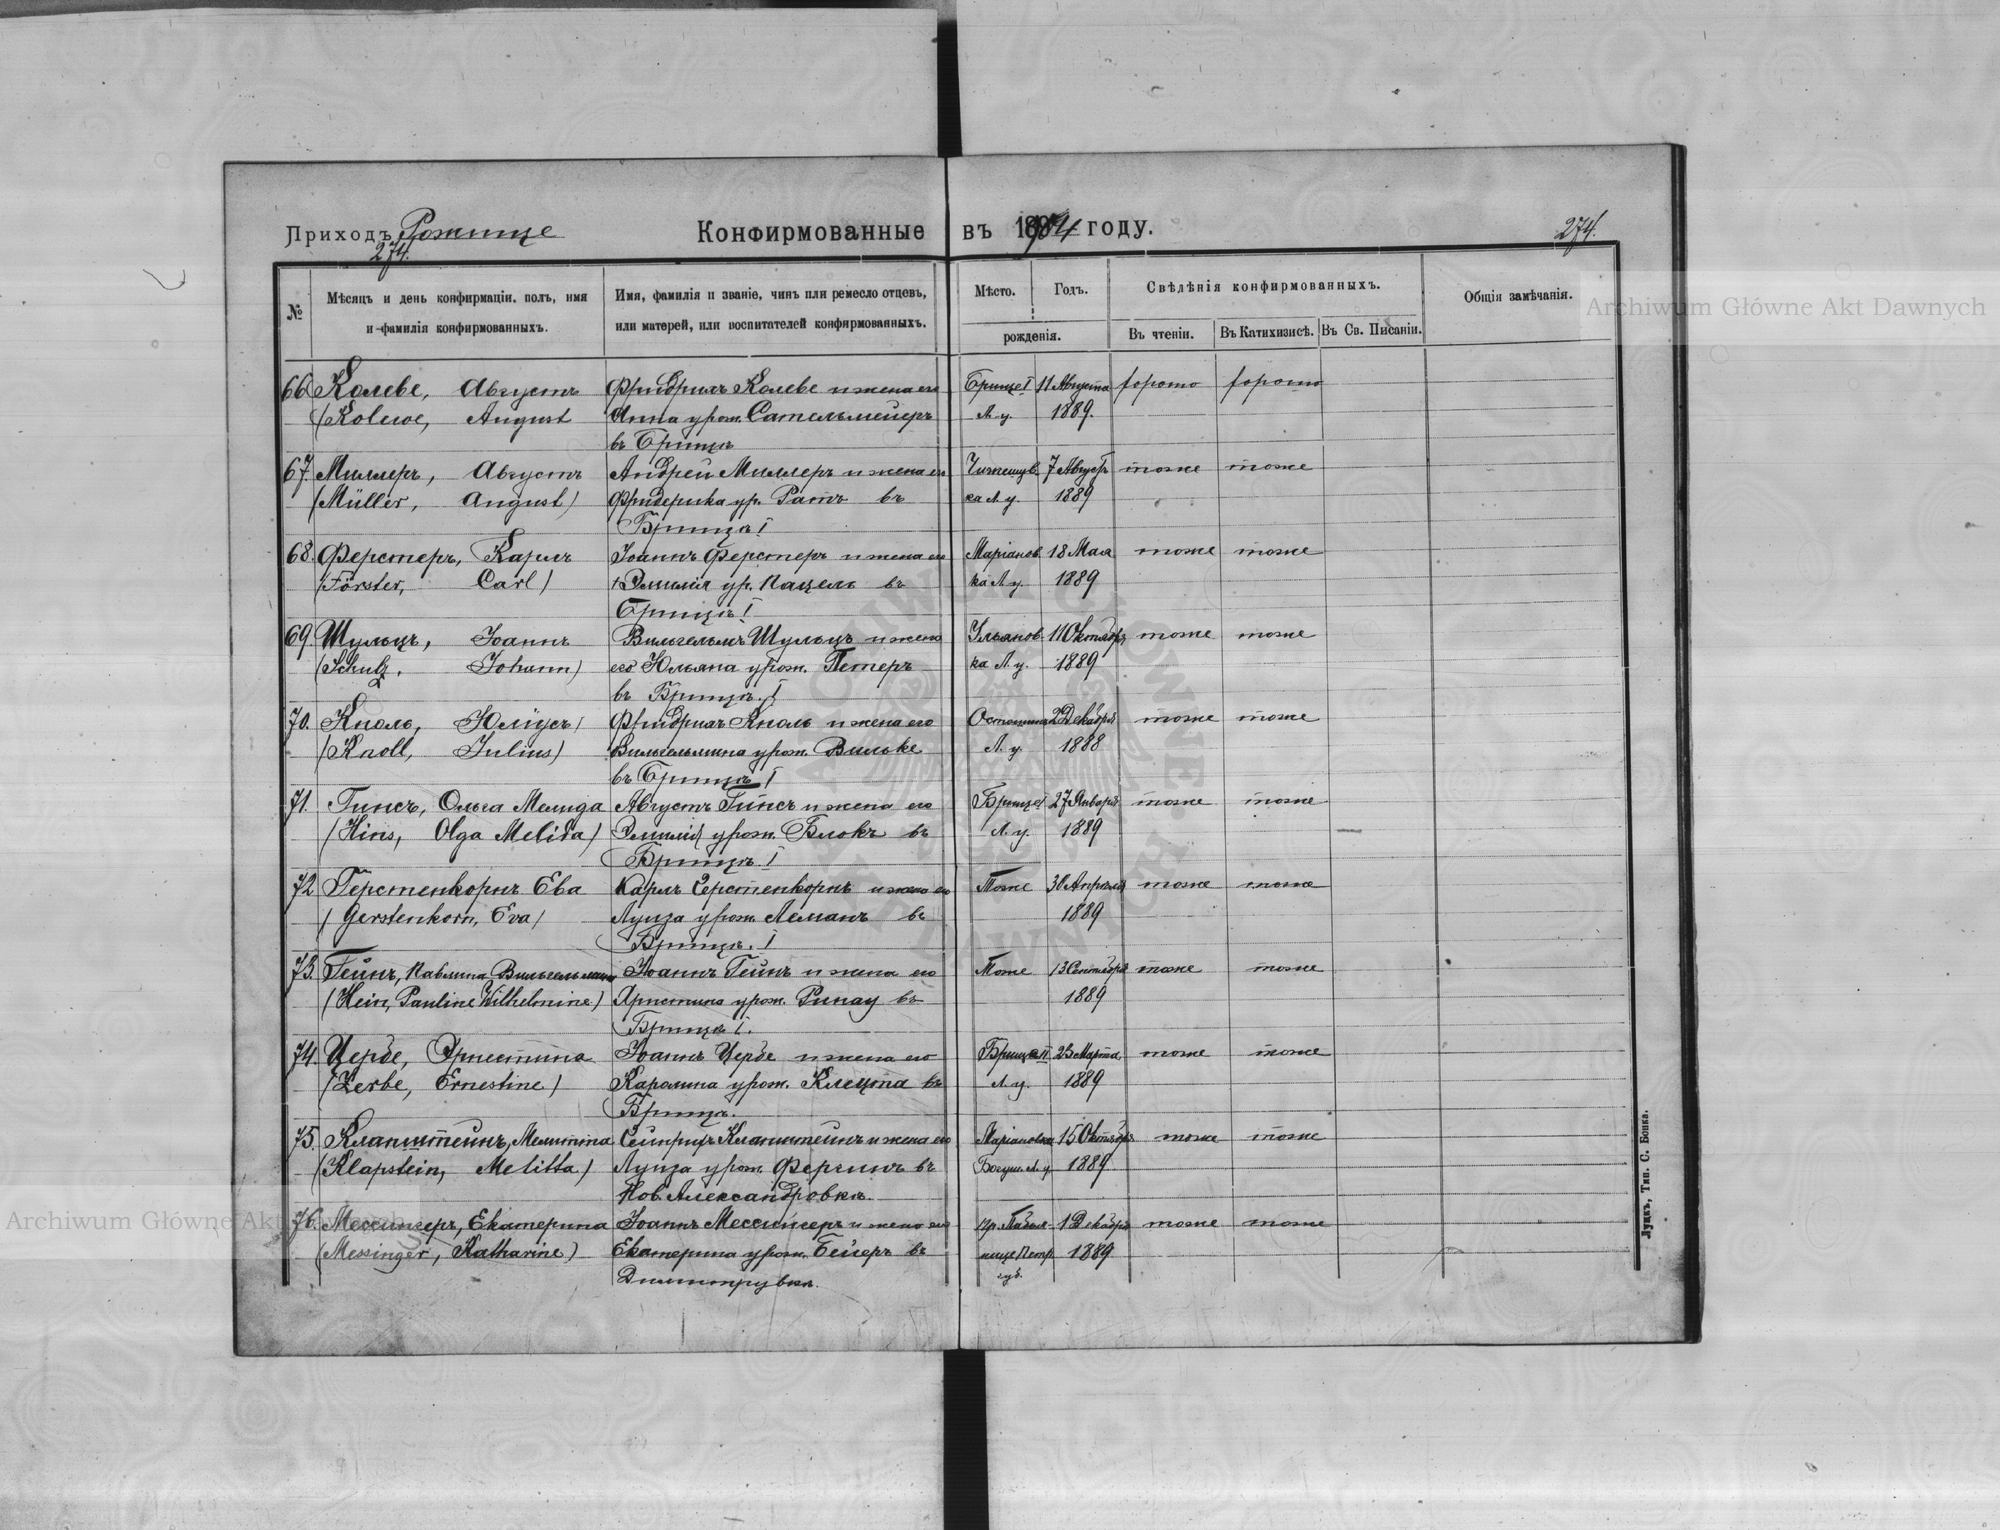 Приходъ Рожище
274.
Конфирмованные въ 1904 году.
274.
№
Мѣсяцъ и день конфирмаціи, полъ, имя
и фамилія конфирмованныхъ.
Имя, фамилія и званіе, чинъ или ремесло отцевъ,
или матерей, или воспитателей конфирмованныхъ.
Мѣсто.
Годъ.
рожденія.
Свѣдѣнія конфирмованныхъ.
Въ чтеніи.
Въ Катихизисѣ.
Въ Св. Писаніи.
Общія замѣчанія.
66. Колеве, Августъ Фридрихъ Колеве и жена его Брище I 11 Августа хорошо хорошо
(Kolewe, August Анна урож. Сательмейеръ Л. у. 1889.
въ Брищѣ
67. Миллеръ, Августъ Андрей Миллеръ и жена его 7 Август. тоже тоже
(Müller, August) Фридерика ур. Ратъ въ ка Л. у. 1889
Брищѣ I
68. Ферстеръ, Карлъ Іоаннъ Ферстеръ и жена его Маріанов 18 Мая тоже тоже
(Förster, Carl) Эмилія ур. Пацель въ ка Л. у. 1889
Брищѣ I
69. Шульцъ, Іоаннъ Вильгельмъ Шульцъ и жена Ульянов 11 Октября тоже тоже
(Schulz, Johann) его Юльяна урож. Петеръ ка Л. у. 1889
въ Брищѣ. I
70. Кноль, Юліусъ Фридрихъ Кноль и жена его 2 Декабря тоже тоже
(Knoll, Julius) Вильгельмина урож. Вильке Л. у. 1888
въ Брищѣ I
71. Гинсъ, Ольга Мелида Августъ Гинсъ и жена его Брище I 27 Января тоже тоже
(Hins, Olga Melida) Эмилія урож. Блокъ въ Л. у. 1889
Брищѣ I
72 Герстенкорнъ Ева Карлъ Герстенкорнъ и жена его Тоже 30 Апрѣля тоже тоже
(Gerstenkorn, Eva) Луиза урож. Леманъ въ 1889
Брищѣ. I
73. Гейнъ, Павлина Вильгельмина Іоаннъ Гейнъ и жена его Тоже 13 Сентября тоже тоже
(Hein, Pauline Wilhelmine) Христина урож. Ринау въ 1889
Брищѣ I.
74. Цербе, Эрнестина Іоаннъ Цербе и жена его Брище II 23 Марта тоже тоже
(Zerbe, Ernestine) Каролина урож. Клецта въ Л. у. 1889
Брищѣ.
75. Клапштейнъ, Мелитта Гейнрихъ Клапштейнъ и жена его Маріановка 15 Октября тоже тоже
(Klapstein, Melitta) Луиза урож. Фергинъ въ Богуш. Л. у. 1889
Нов. Александровкѣ.
76. Мессингеръ, Екатерина Іоаннъ Мессингеръ и жена его 1 Декабря тоже тоже
(Messinger, Katharine) Екатерина урож. Бейеръ въ Петр. 1889
Димитрувкѣ. губ.
Луцкъ, Тип. С. Бонка.
Archiwum Główne Akt Dawnych
Archiwum Główne Akt Dawnych